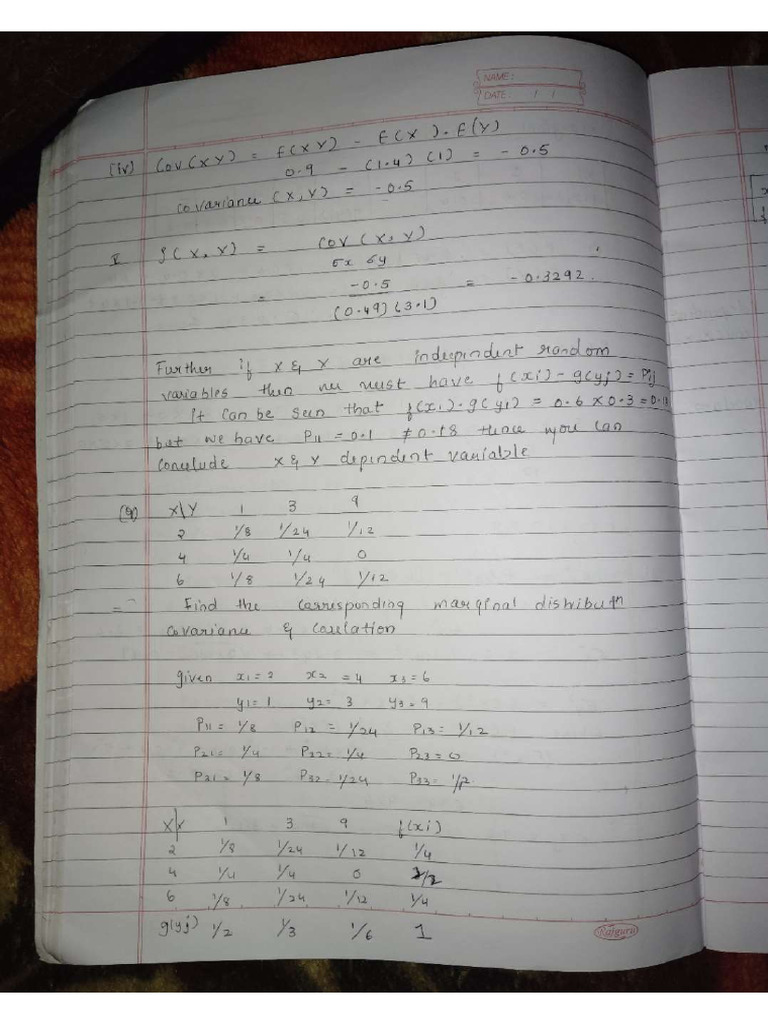 NAME:
DATE: / /
(iv) Cov(XY) = E(XY) - E(X).E(Y)
0.9 - (1.4)(1) = -0.5
covariance (X,Y) = -0.5
V ρ(X,Y) = Cov(X,Y)
σx σy
= -0.5 = -0.3292.
(0.49)(3.1)
Further if X & Y are independent random
variables then we must have f(xi)-g(yj)=Pij
It can be seen that f(x1).g(y1) = 0.6 × 0.3 = 0.18
but we have P11 = 0.1 ≠ 0.18 thence you can
conclude X & Y dependent variable
(Q) X\Y 1 3 9
2 1/8 1/24 1/12
4 1/4 1/4 0
6 1/8 1/24 1/12
= Find the corresponding marginal distributn
covariance & corelation
given x1=2 x2=4 x3=6
y1=1 y2=3 y3=9
P11=1/8 P12=1/24 P13=1/12
P21=1/4 P22=1/4 P23=0
P31=1/8 P32=1/24 P33=1/12
X|Y 1 3 9 f(xi)
2 1/8 1/24 1/12 1/4
4 1/4 1/4 0 1/2
6 1/8 1/24 1/12 1/4
g(yj) 1/2 1/3 1/6 1
Rajguru